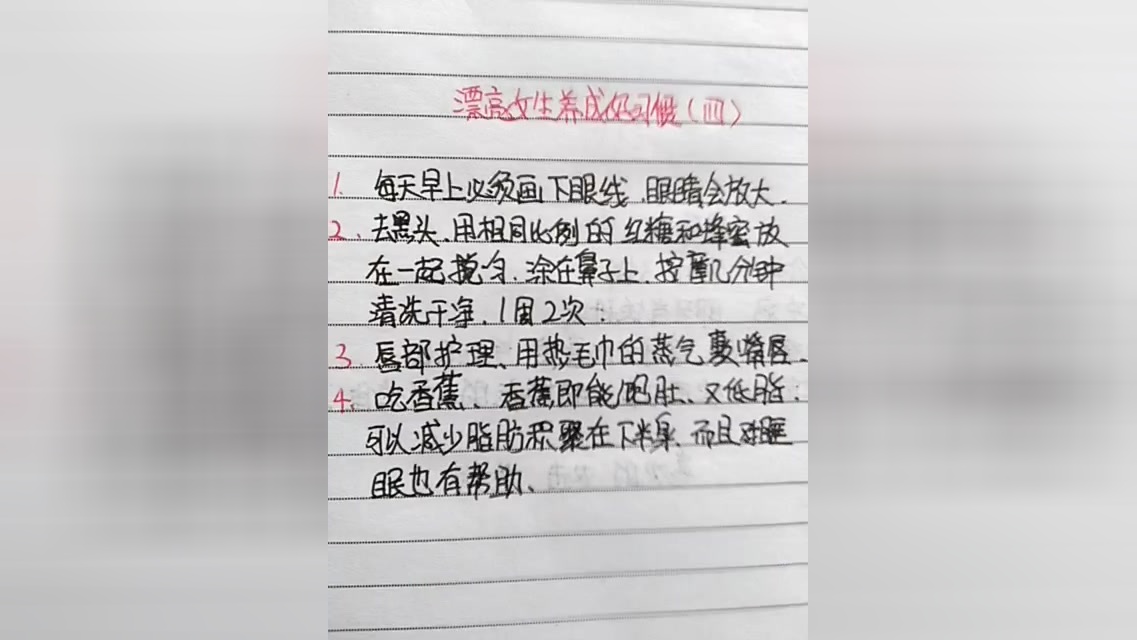 漂亮女生养成好习惯(四)
1. 每天早上必须画下眼线、眼睛会放大.
2、去黑头、用相同比例的红糖和蜂蜜放
在一起搅匀.涂在鼻子上.按摩几分钟
清洗干净、1周2次:
3、唇部护理、用热毛巾的蒸气敷嘴唇、
4、吃香蕉、香蕉即能饱肚、又低脂:
可以减少脂肪积聚在下半身、而且对睡
眠也有帮助、